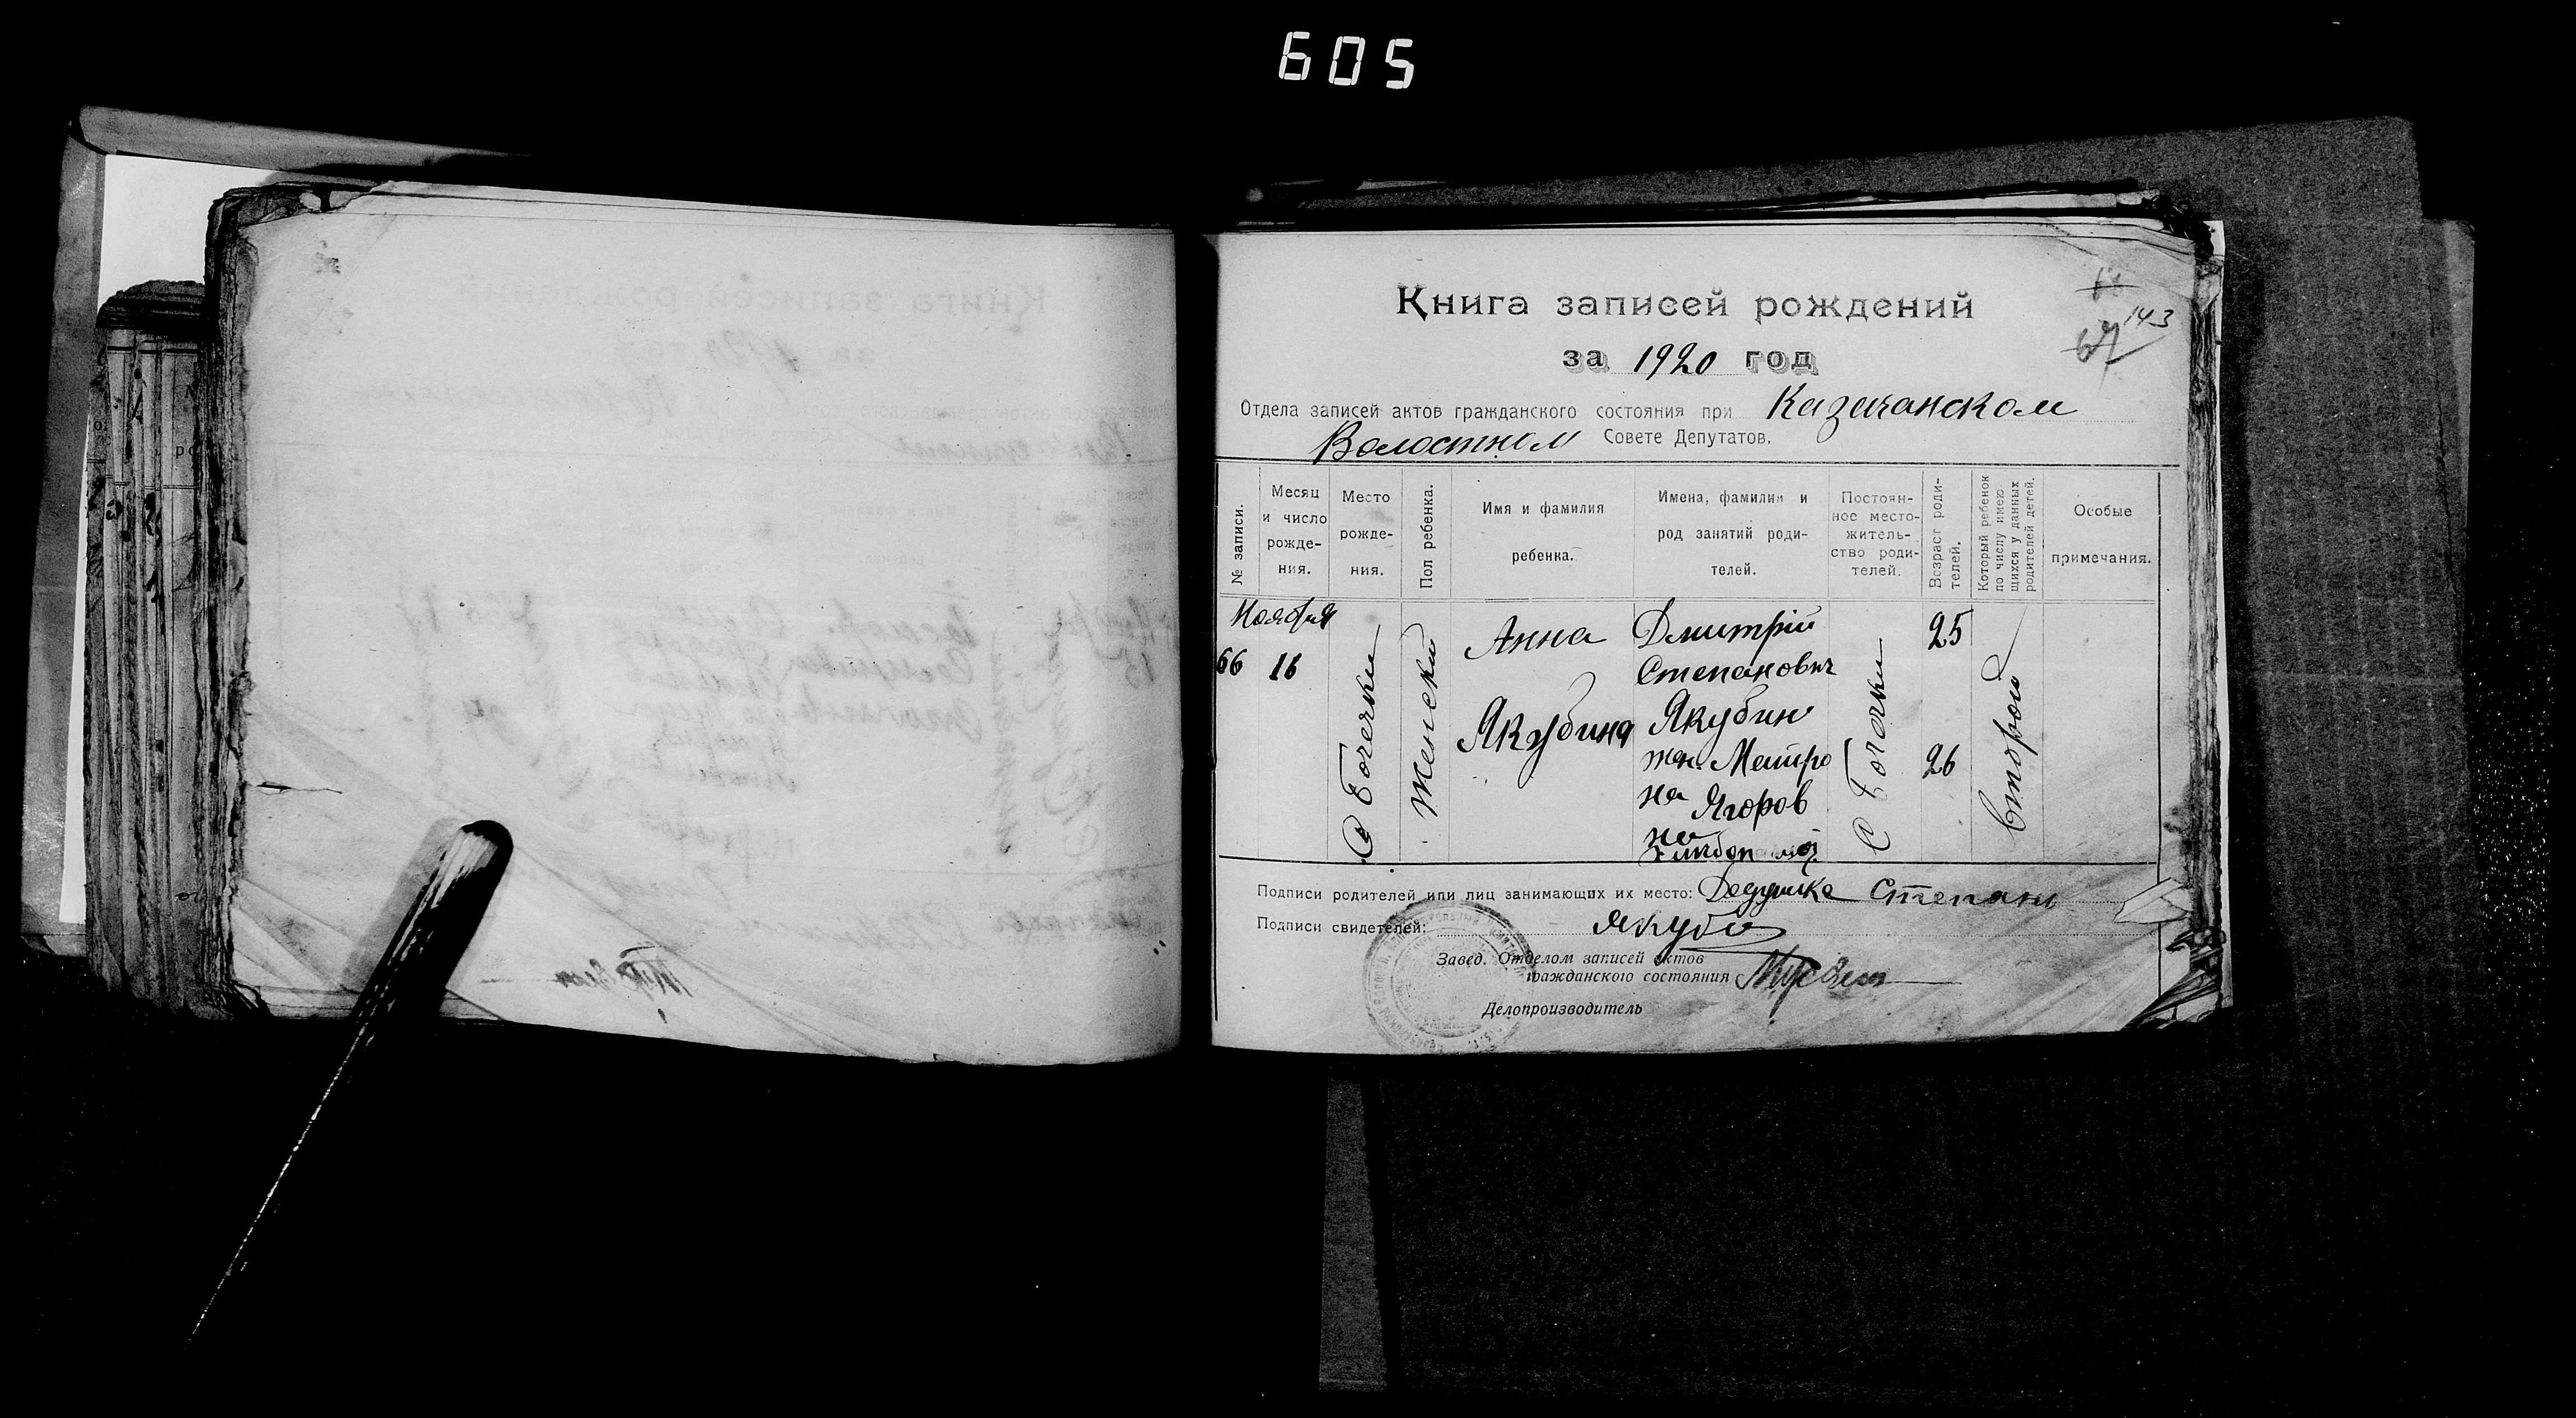 605
Книга записей рождений
143
67
за 1920 год
Отдела записей актов гражданского состояния при Казачанском
Волостном Совете Депутатов.
№ записи.
Месяц и число рожде-ния.
Место рожде-ния.
Пол ребенка.
Имя и фамилия ребенка.
Имена, фамилии и род занятий роди-телей.
Постоян-ное место-житель-ство роди-телей.
Возраст роди-телей.
Который ребенок по числу имею-щихся у данных родителей детей.
Особые примечания.
Ноября
66
16
С Бочечки
Женский
Анна
Якубина
Дмитрій
Степанович
Якубин
жен. Матро
на Ягоров
на
С Бочечки
25
26
Второй
Подписи родителей или лиц занимающих их место: Дедушка Степанъ
Подписи свидетелей: Якуби
Завед. Отделом записей актов
гражданского состояния
Делопроизводитель